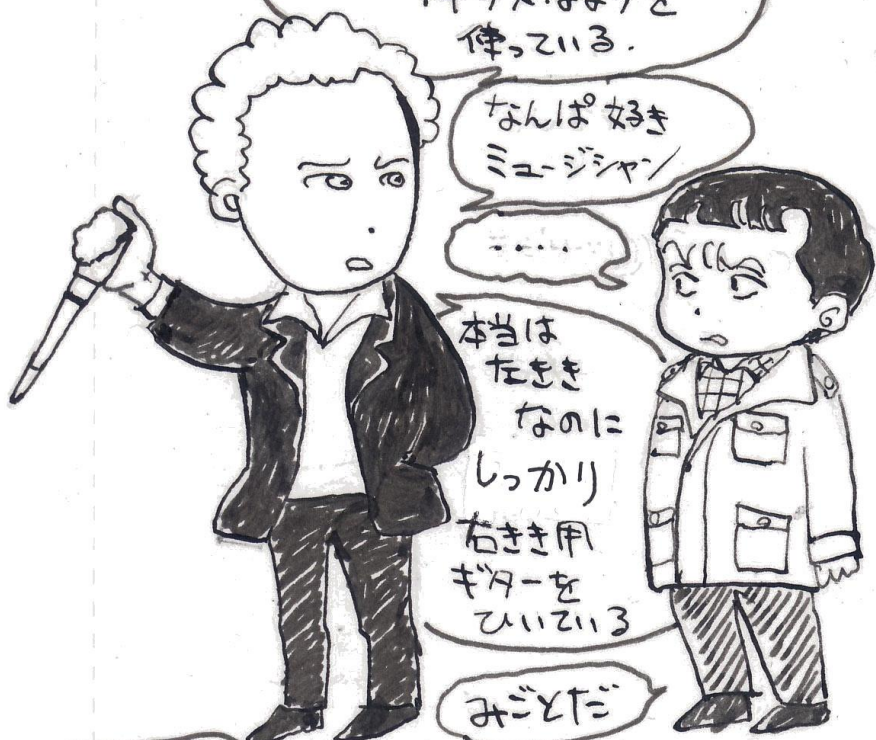 使っている.
なんぱ好き
ミュージシャン
....
本当は
左きき
なのに
しっかり
右きき用
ギターを
ひいている
みごとだ